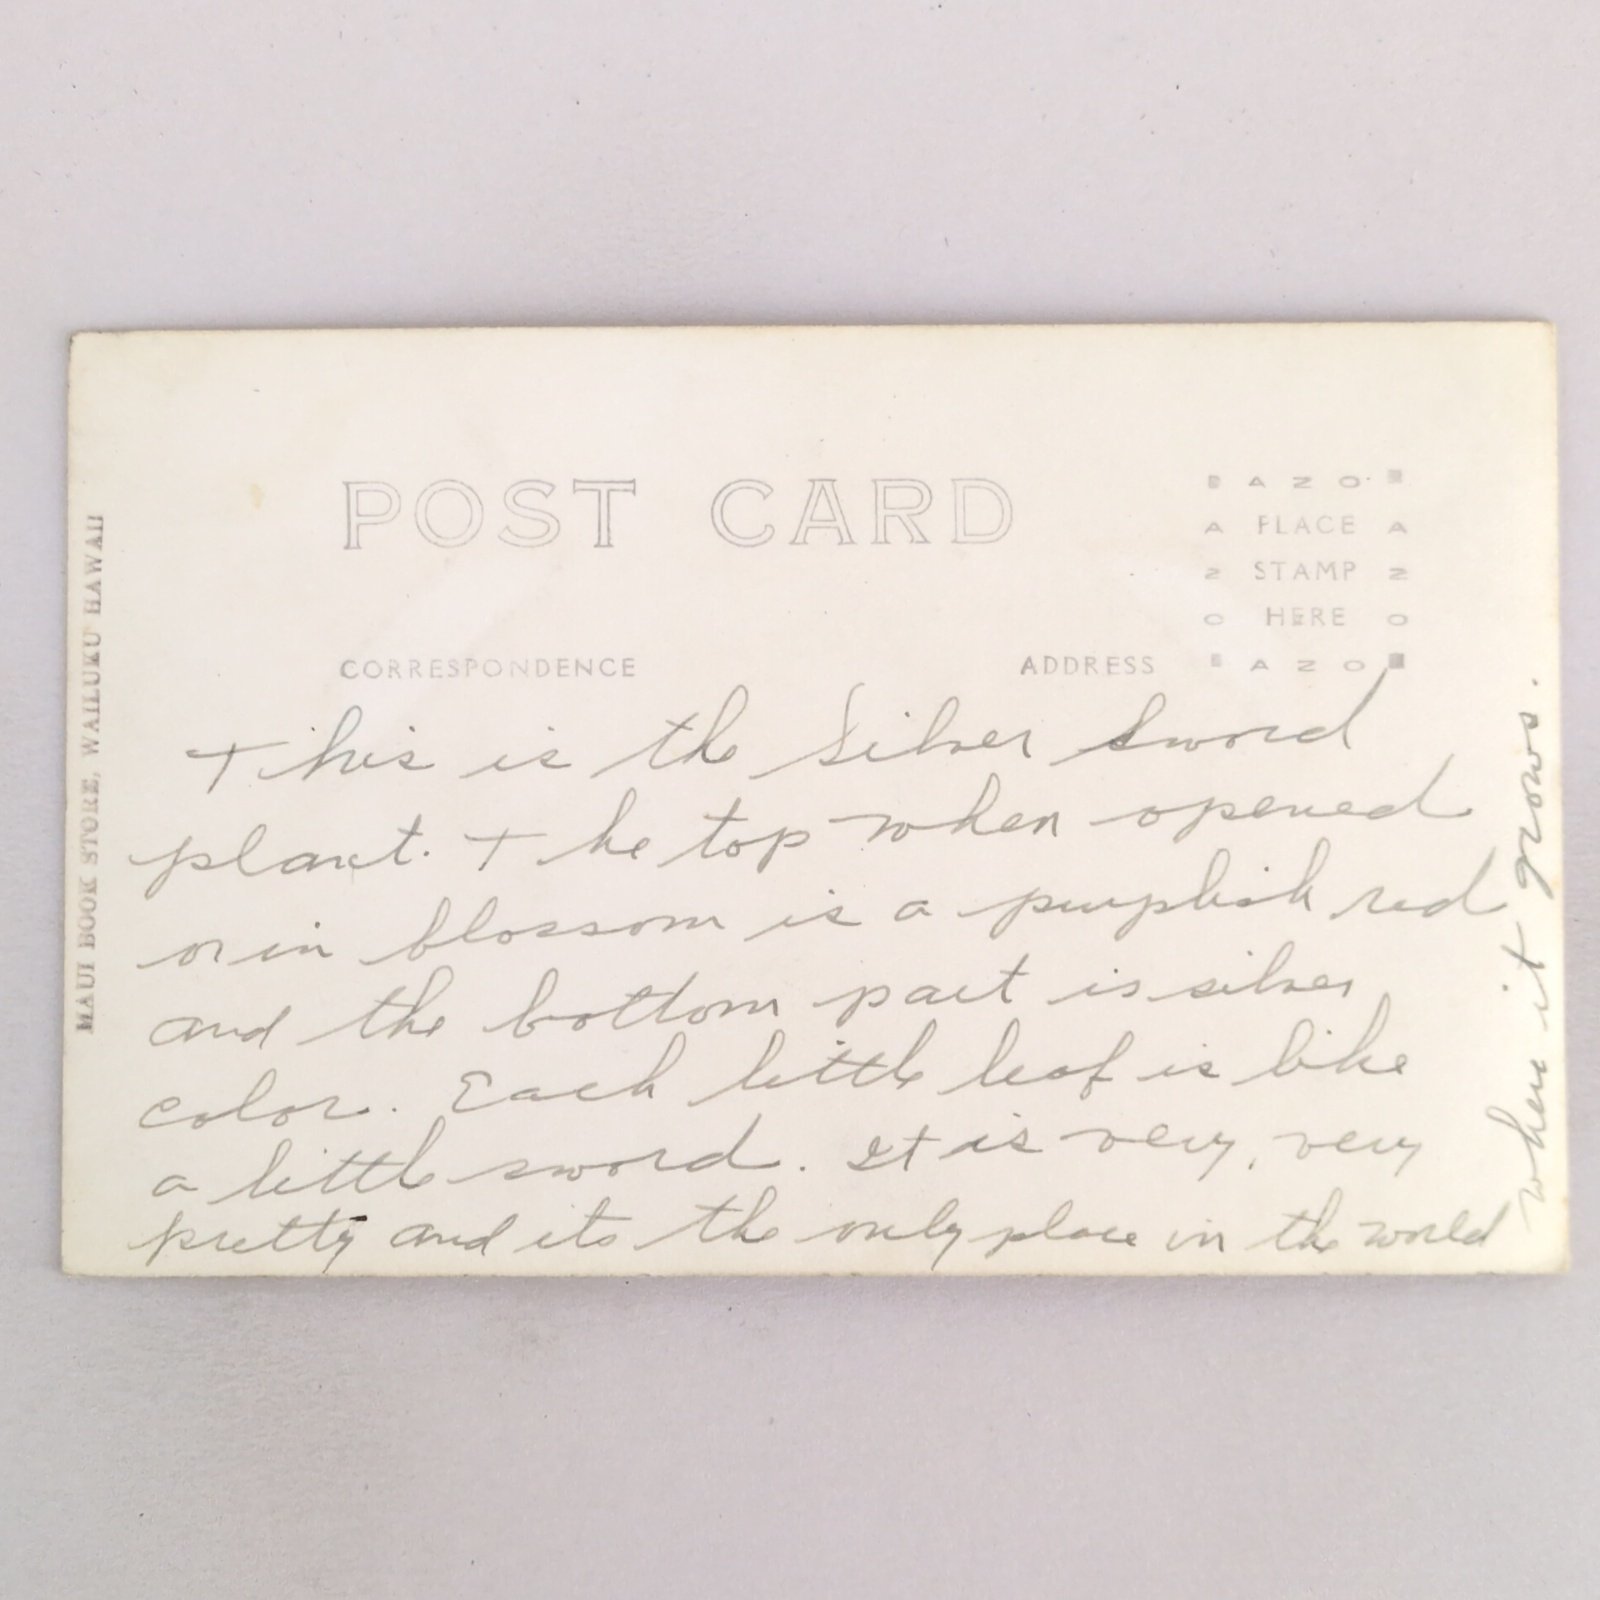 POST CARD
AZO
A PLACE A
Z STAMP Z
O HERE O
AZO
CORRESPONDENCE
ADDRESS
MAUI BOOK STORE, WAILUKU HAWAII
This is the Silver Sword
plant. The top when opened
or in blossom is a purplish red
and the bottom part is silver
color. Each little leaf is like
a little sword. It is very, very
pretty and its the only place in the world
where it grows.